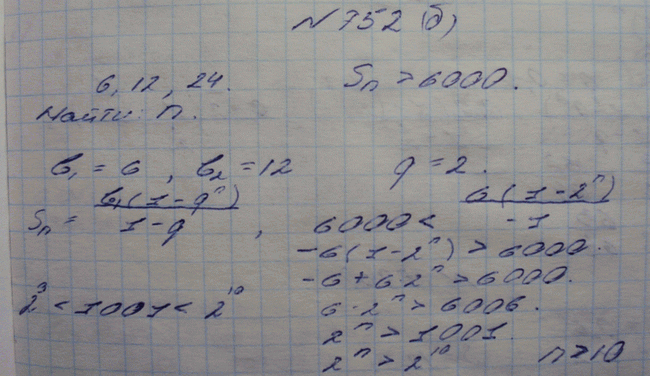 N 752 (б)
6, 12, 24. Sₙ > 6000.
Найти: n.
b₁ = 6, b₂ = 12 q = 2.
Sₙ = b₁(1 - qⁿ) / 1 - q, 6000 < 6(1 - 2ⁿ) / -1
-6(1 - 2ⁿ) > 6000.
-6 + 6·2ⁿ > 6000.
2⁹ < 1001 < 2¹⁰ 6·2ⁿ > 6006.
2ⁿ > 1001.
2ⁿ > 2¹⁰ n > 10